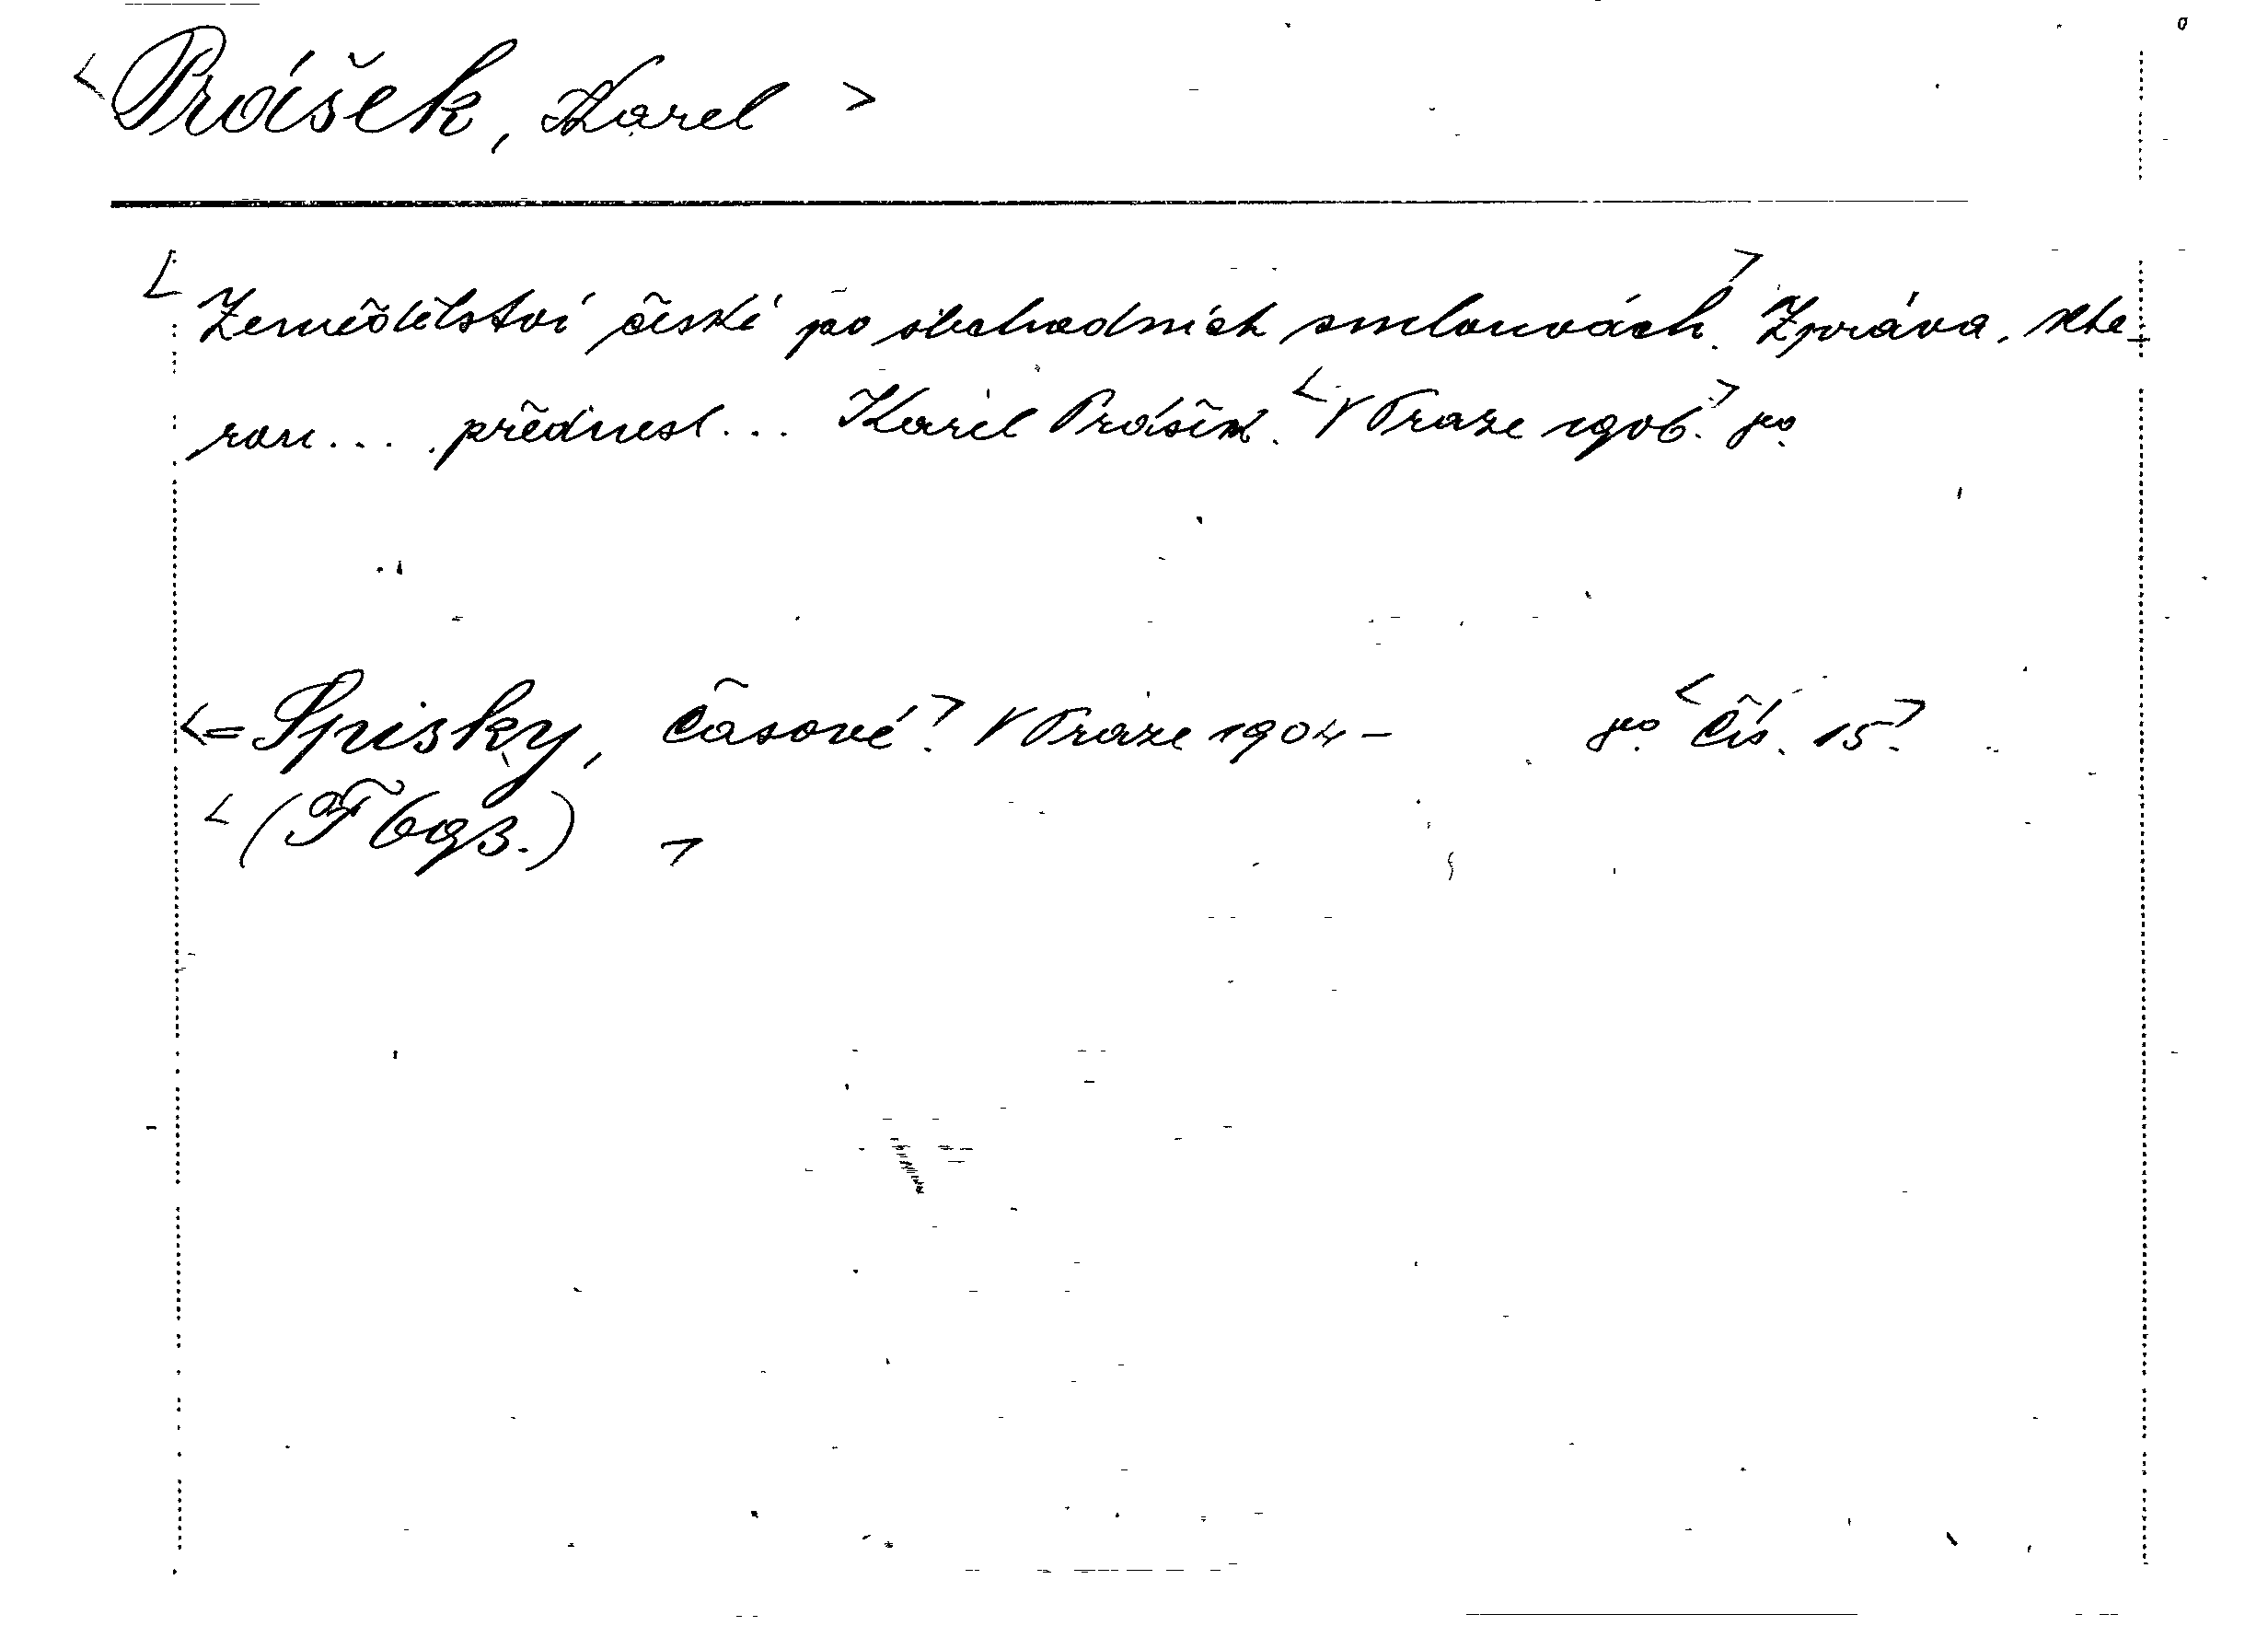 <Prášek, Karel>
<Zemědělství české po obchodních smlouvách.> Zpráva, kte-
rou ... přednesl ... Karel Prášek. <V Praze 1906.> 8°.
<= Spisky, časové.> V Praze 1904 - 8°. <Čís. 15.>
<(F 693.)>